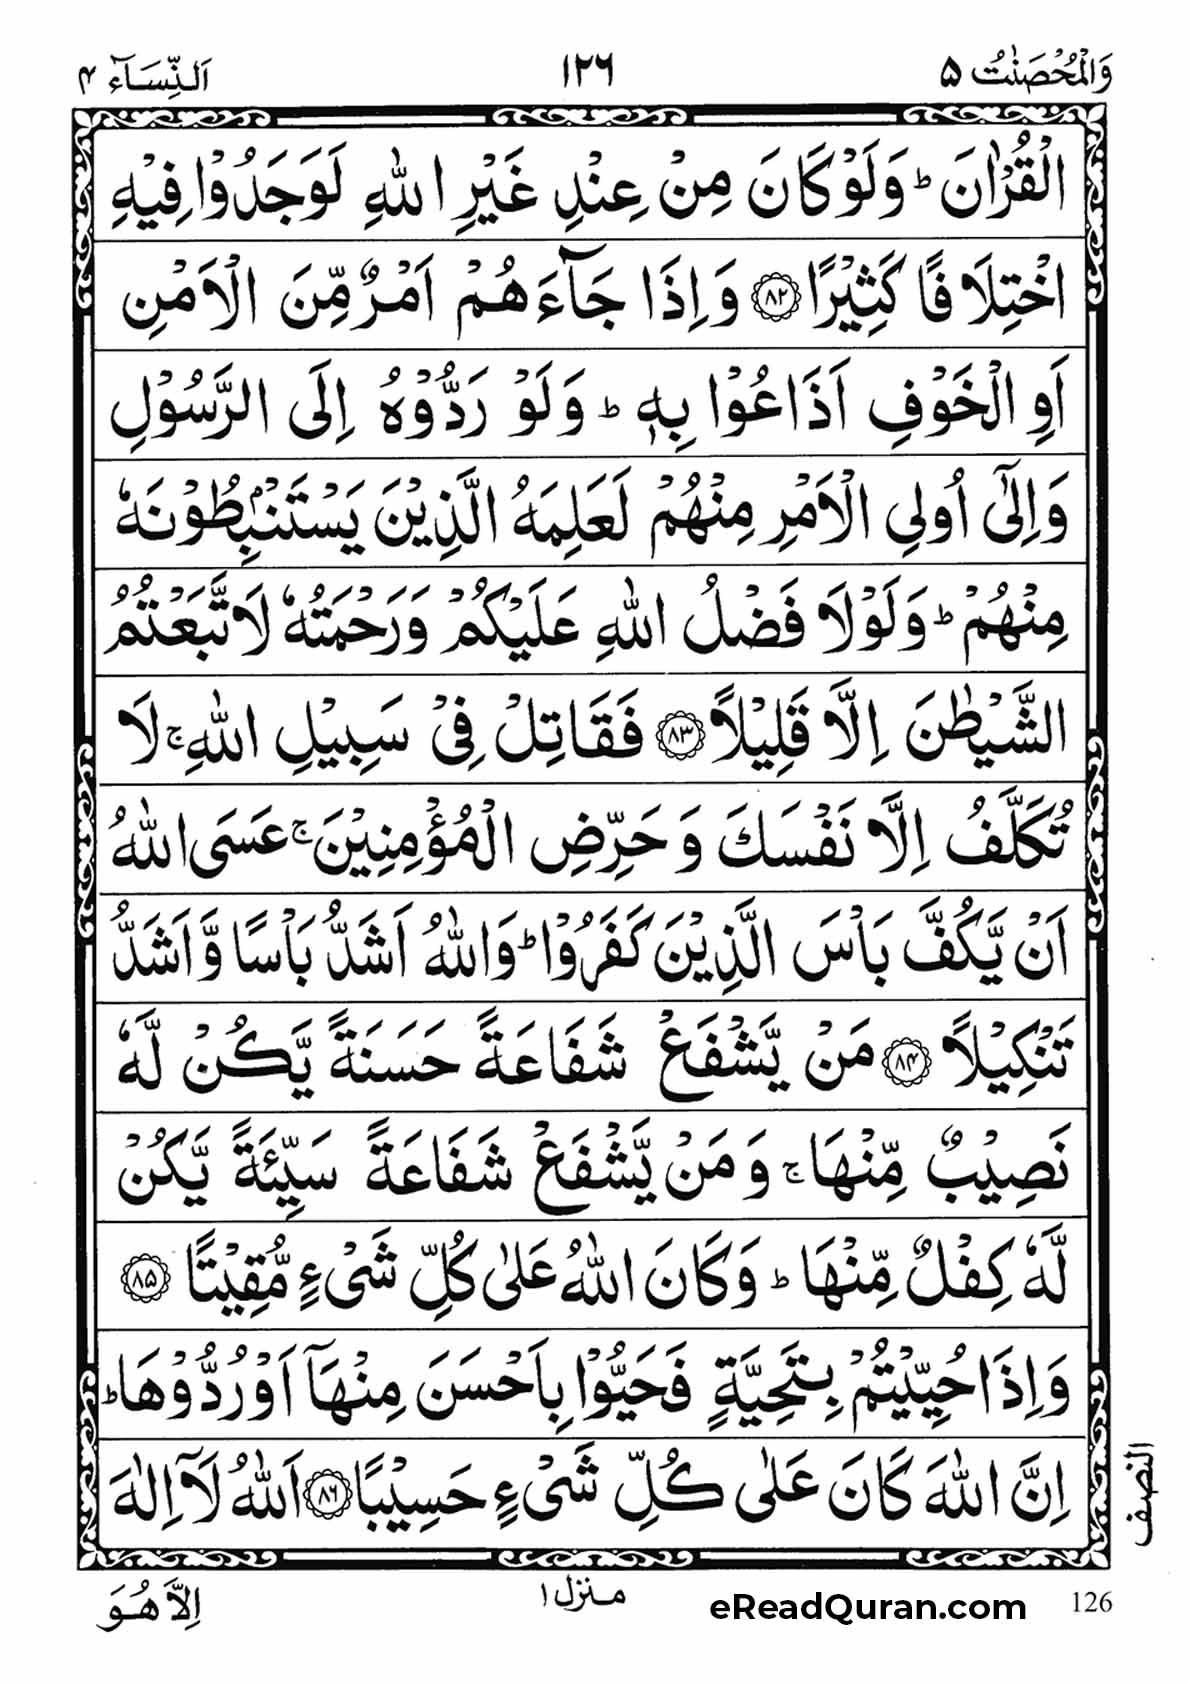 وَالْمُحْصَنٰتُ ۵ ١٢٦ اَلنِّسَآء ۴
الْقُرْاٰنَ ؕ وَلَوْ كَانَ مِنْ عِنْدِ غَيْرِ اللّٰهِ لَوَجَدُوْا فِيْهِ
اخْتِلَافًا كَثِيْرًا ﴿۸۲﴾ وَاِذَا جَآءَهُمْ اَمْرٌ مِّنَ الْاَمْنِ
اَوِ الْخَوْفِ اَذَاعُوْا بِهٖ ؕ وَلَوْ رَدُّوْهُ اِلَى الرَّسُوْلِ
وَاِلٰٓى اُولِي الْاَمْرِ مِنْهُمْ لَعَلِمَهُ الَّذِيْنَ يَسْتَنْۢبِطُوْنَهٗ
مِنْهُمْ ؕ وَلَوْلَا فَضْلُ اللّٰهِ عَلَيْكُمْ وَرَحْمَتُهٗ لَاتَّبَعْتُمُ
الشَّيْطٰنَ اِلَّا قَلِيْلًا ﴿۸۳﴾ فَقَاتِلْ فِىْ سَبِيْلِ اللّٰهِ ۚ لَا
تُكَلَّفُ اِلَّا نَفْسَكَ وَحَرِّضِ الْمُؤْمِنِيْنَ ۚ عَسَى اللّٰهُ
اَنْ يَّكُفَّ بَاْسَ الَّذِيْنَ كَفَرُوْا ؕ وَاللّٰهُ اَشَدُّ بَاْسًا وَّاَشَدُّ
تَنْكِيْلًا ﴿۸۴﴾ مَنْ يَّشْفَعْ شَفَاعَةً حَسَنَةً يَّكُنْ لَّهٗ
نَصِيْبٌ مِّنْهَا ۚ وَمَنْ يَّشْفَعْ شَفَاعَةً سَيِّئَةً يَّكُنْ
لَّهٗ كِفْلٌ مِّنْهَا ؕ وَكَانَ اللّٰهُ عَلٰى كُلِّ شَىْءٍ مُّقِيْتًا ﴿۸۵﴾
وَاِذَا حُيِّيْتُمْ بِتَحِيَّةٍ فَحَيُّوْا بِاَحْسَنَ مِنْهَآ اَوْ رُدُّوْهَا ؕ
اِنَّ اللّٰهَ كَانَ عَلٰى كُلِّ شَىْءٍ حَسِيْبًا ﴿۸۶﴾ اَللّٰهُ لَآ اِلٰهَ
النصف
منزل ١ اِلَّا هُوَ
eReadQuran.com 126